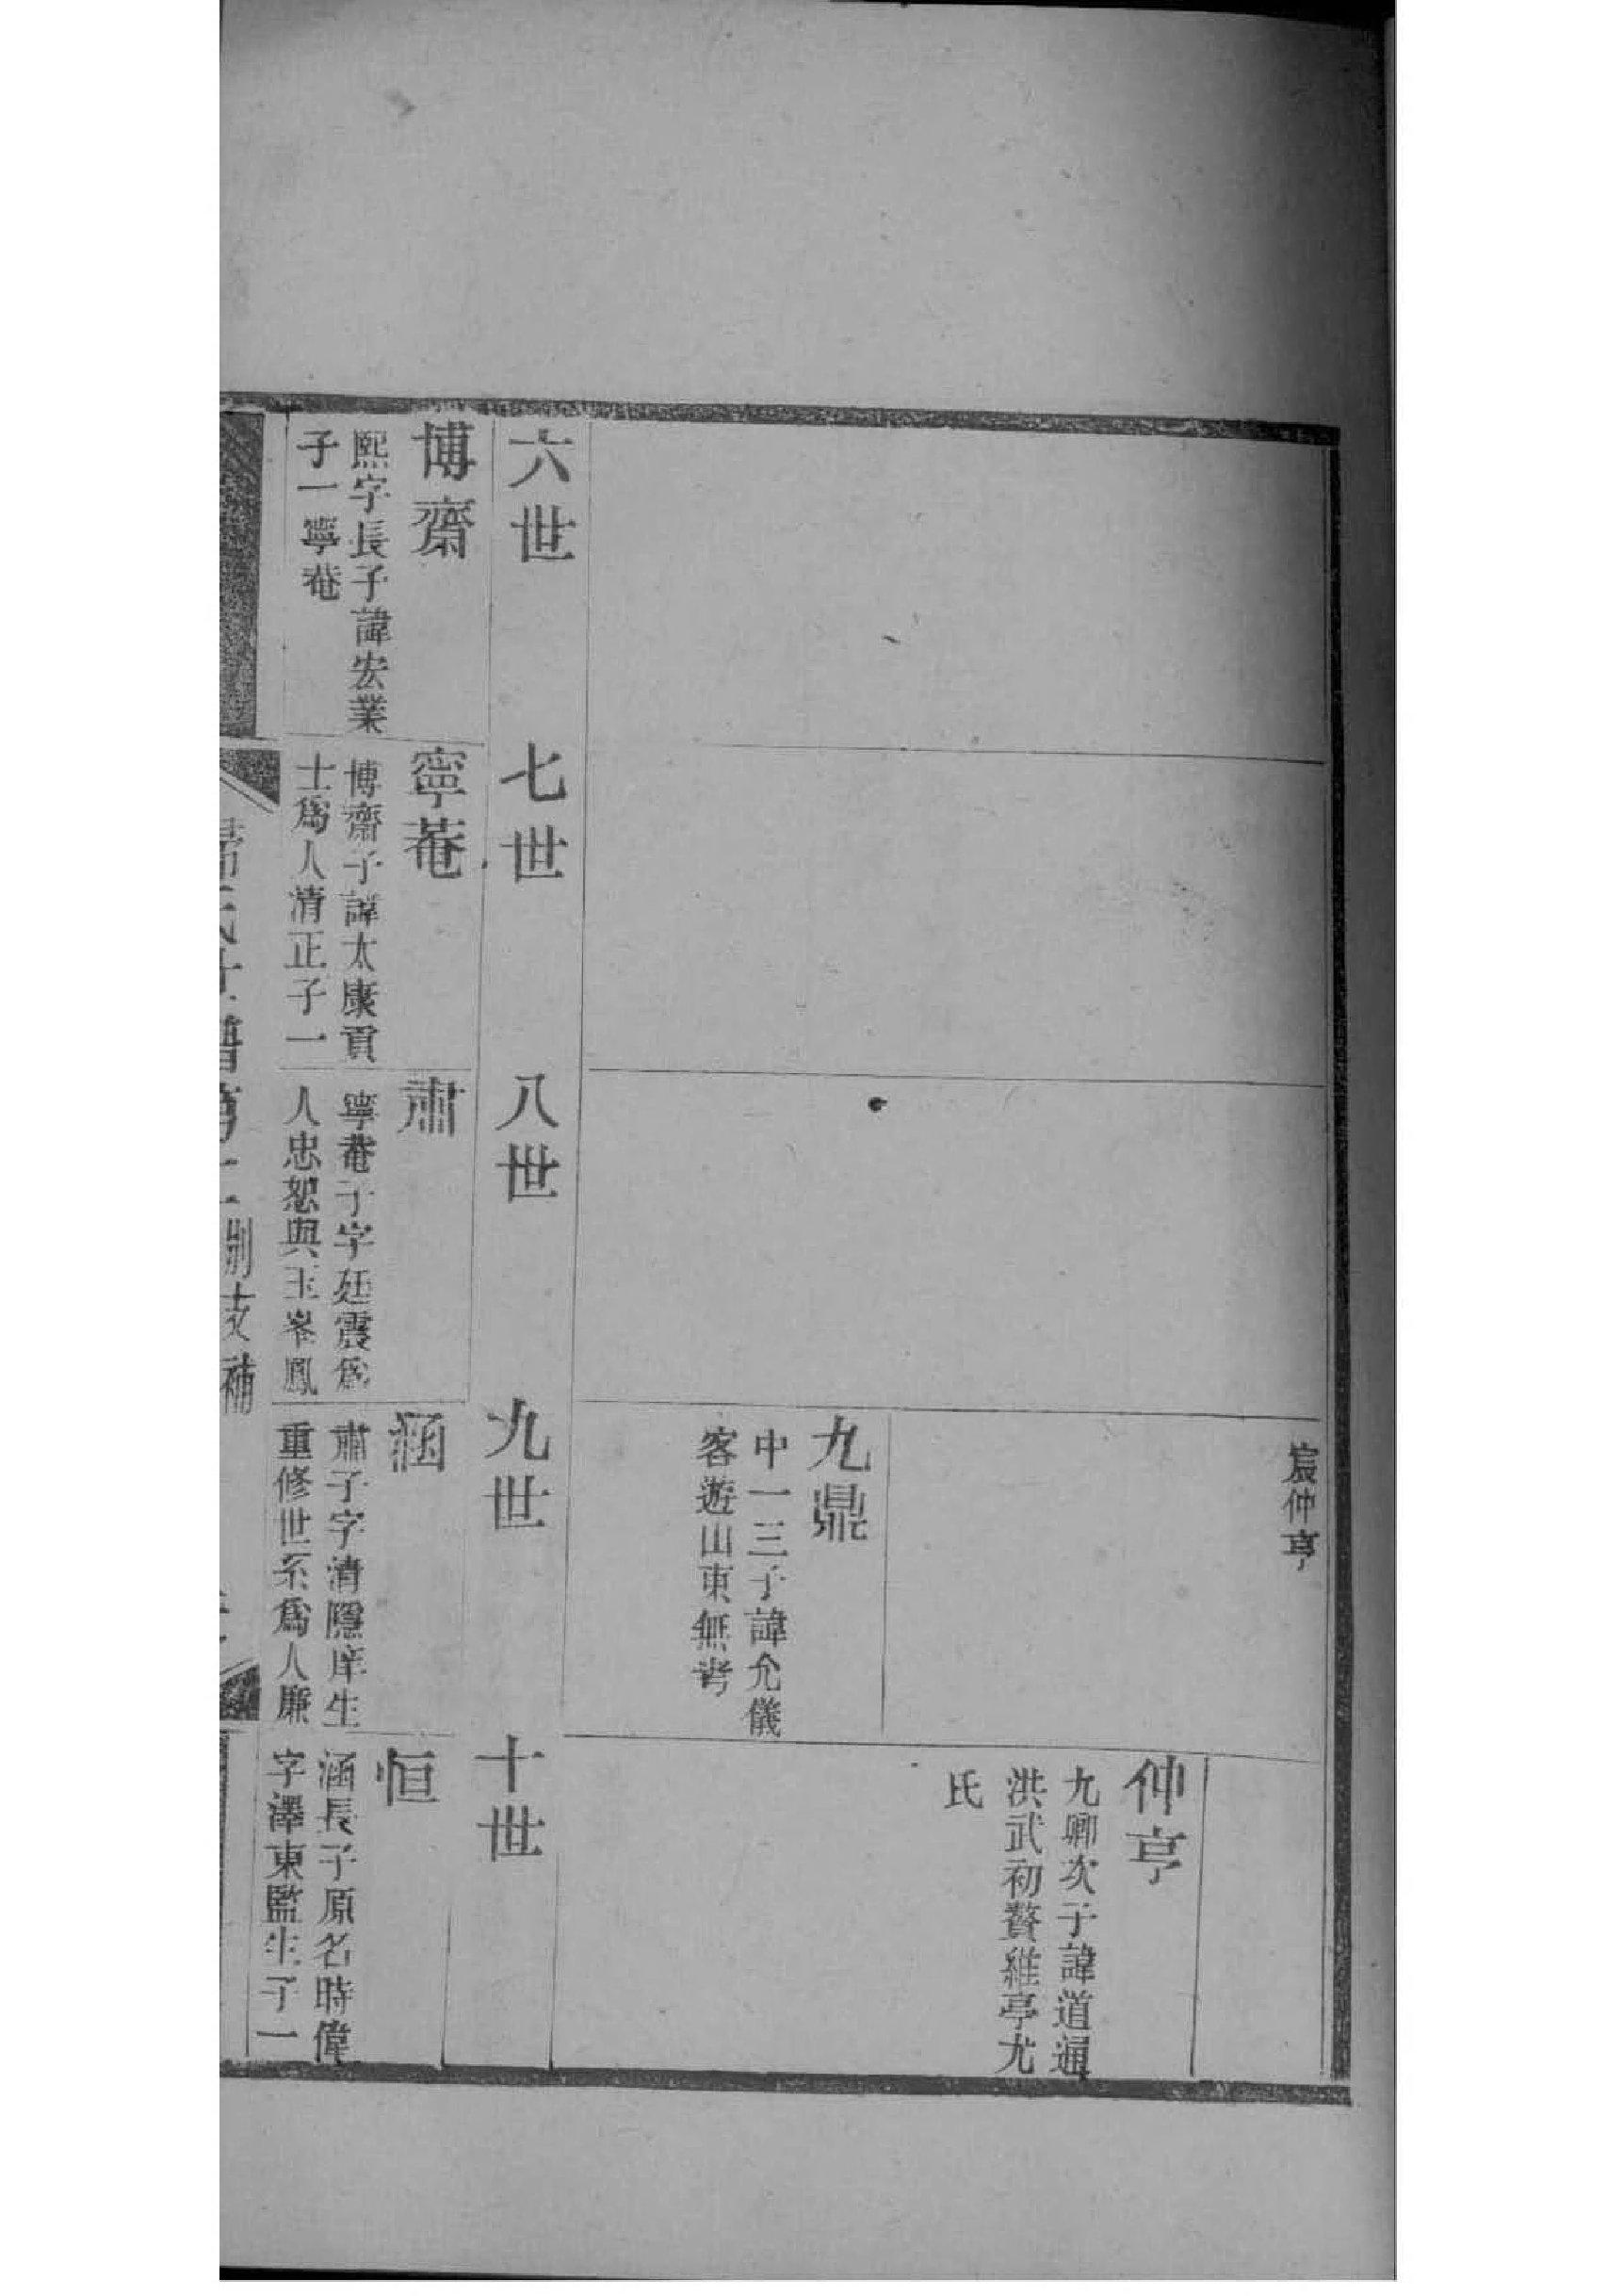 宸仲亨
仲亨
九卿次子諱道通
洪武初贅維亭尤
氏
九鼎
中一三子諱允儀
客遊山東無考
六世
七世
八世
九世
十世
博齋
熙字長子諱宏業
子一寧菴
寧菴
博齋子諱太康貢
士爲人清正子一
肅
寧菴子字廷震爲
人忠恕與玉峯鳳
涵
肅子字清隱庠生
重修世系爲人廉
恒
涵長子原名時偉
字澤東監生子一
氏世譜第
支補